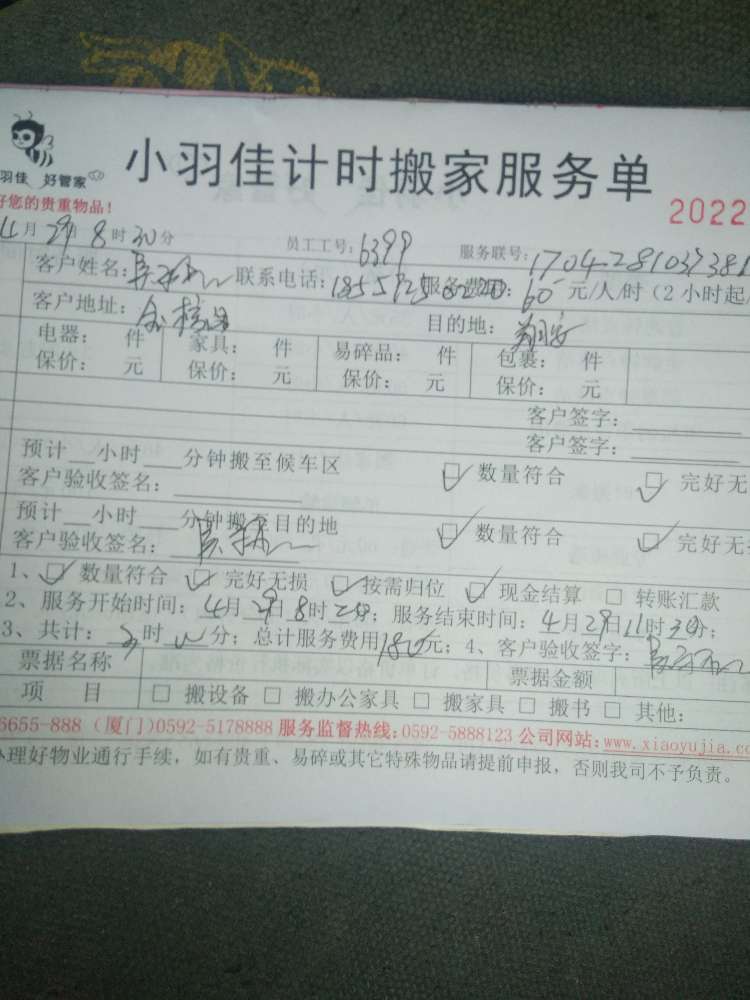 羽佳 好管家
小羽佳计时搬家服务单
好您的贵重物品！
2022
4月29日8时30分 员工工号：6399 服务联号：1704-28103738
客户姓名： 联系电话：服务费用：60元/人/时（2小时起
客户地址： 目的地：翔安
电器： 件 家具： 件 易碎品： 件 包裹： 件
保价： 元 保价： 元 保价： 元 保价： 元
客户签字：
客户签字：
预计__小时___分钟搬至候车区 数量符合 完好无
客户验收签名：
预计__小时___分钟搬至目的地 数量符合 完好无
客户验收签名：
1、 数量符合 完好无损 按需归位 现金结算 转账汇款
2、服务开始时间：4月29日8时30分；服务结束时间：4月29日11时30分；
3、共计： 时 分；总计服务费用180元；4、客户验收签字：
票据名称 票据金额
项 目 搬设备 搬办公家具 搬家具 搬书 其他：
6655-888（厦门）0592-5178888 服务监督热线：0592-5888123 公司网站：www.xiaoyujia.com
办理好物业通行手续，如有贵重、易碎或其它特殊物品请提前申报，否则我司不予负责。